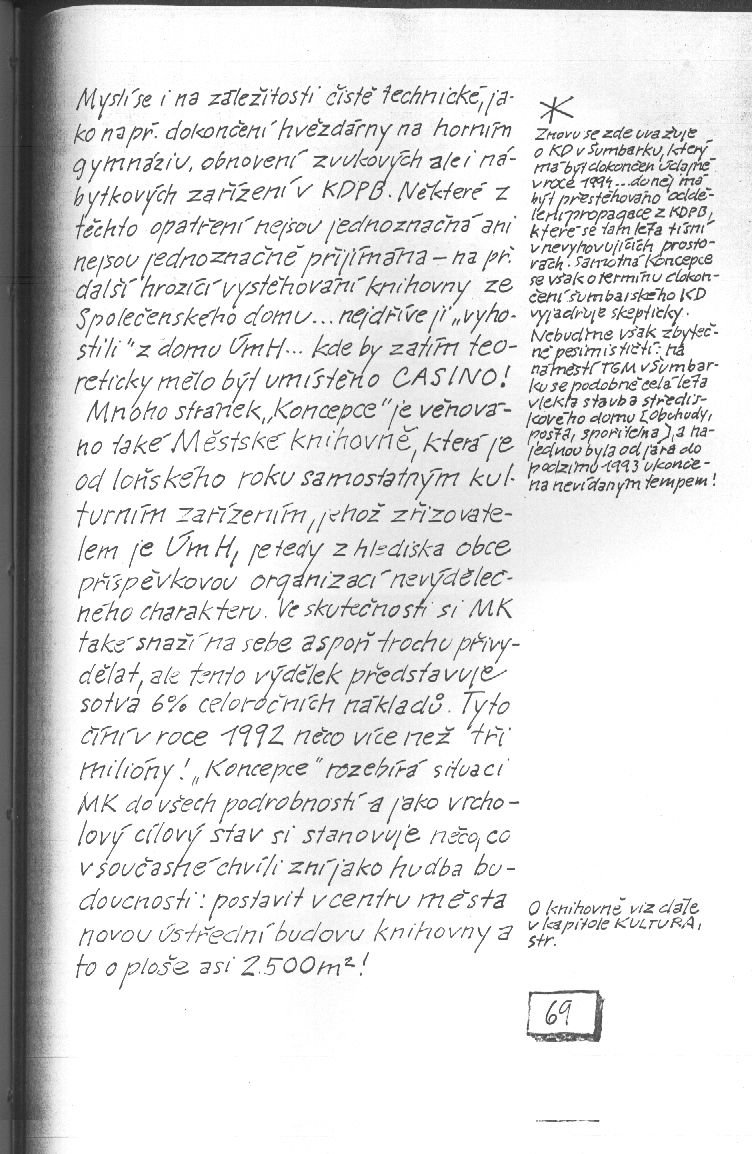 Myslí se i na záležitosti čistě technické, ja-
ko např. dokončení hvězdárny na horním
gymnáziu, obnovení zvukových ale i ná-
bytkových zařízení v KDPB. Některé z
těchto opatření nejsou jednoznačná ani
nejsou jednoznačně přijímána – na př.
další hrozící vystěhování knihovny ze
Společenského domu... nejdříve ji „vyho-
stili“ z domu ÚmH... kde by zatím teo-
reticky mělo být umístěno CASINO!
Mnoho stránek „Koncepce“ je věnová-
no také Městské knihovně, která je
od loňského roku samostatným kul-
turním zařízením, jehož zřizovate-
lem je ÚmH, je tedy z hlediska obce
příspěvkovou organizací nevýděleč-
ného charakteru. Ve skutečnosti si MK
také snaží na sebe aspoň trochu přivy-
dělat, ale tento výdělek představuje
sotva 6% celoročních nákladů. Tyto
činí v roce 1992 něco více než tři
milióny! „Koncepce“ rozebírá situaci
MK do všech podrobností a jako vrcho-
lový cílový stav si stanovuje něco, co
v současné chvíli zní jako hudba bu-
doucnosti: postavit v centru města
novou ústřední budovu knihovny a
to o ploše asi 2.500m²!
*
Znovu se zde uvažuje
o KD v Šumbarku, který
má být dokončen údajně
v roce 1994... do něj má
být přestěhováno oddě-
lení propagace z KDPB,
které se tam léta tísní
v nevyhovujících prosto-
rách. Samotná Koncepce
se však o termínu dokon-
čení šumbarského KD
vyjadřuje skepticky.
Nebuďme však zbyteč-
ně pesimističtí: na
náměstí TGM v Šumbar-
ku se podobně celá léta
vlekla stavba středis-
kového domu (obchody,
pošta, spořitelna), a na-
jednou byla od jara do
podzimu 1993 ukonče-
na nevídaným tempem!
O knihovně viz dále
v kapitole KULTURA,
str.
69